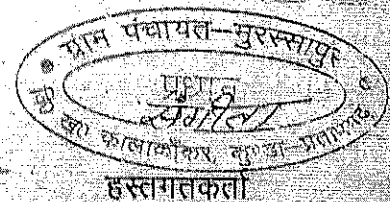 ग्राम पंचायत-मुरस्सापुर
प्रधान
संगीता
वि० ख० कालाकाँकर, कुण्डा प्रतापगढ़
हस्तगतकर्ता